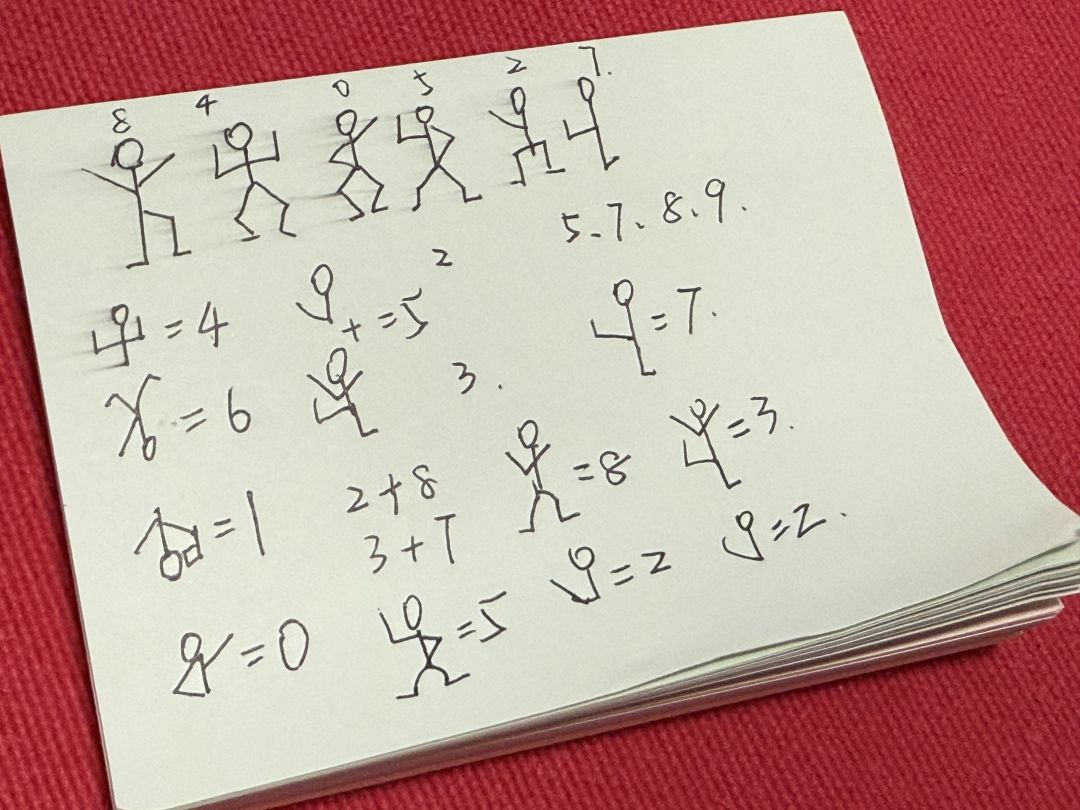 8 4 0 5 2 7.
5.7.8.9.
2
=4 + =5 =7.
=6 3.
=3.
2+8 =8
=1
3+7
=2 =2.
=0 =5